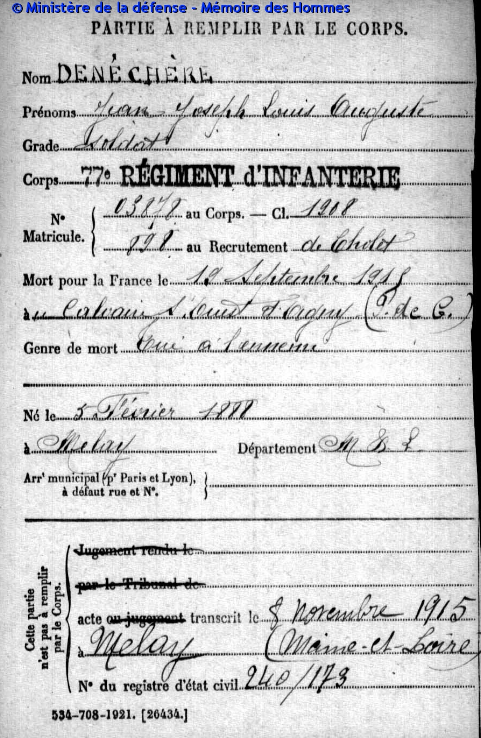 © Ministère de la défense - Mémoire des Hommes
PARTIE À REMPLIR PAR LE CORPS.
Nom DENÉCHÈRE
Prénoms Jean Joseph Louis Auguste
Grade Soldat
Corps 77e RÉGIMENT d'INFANTERIE
N° Matricule. { 03878 au Corps. — Cl. 1908
898 au Recrutement de Cholet
Mort pour la France le 19 Septembre 1915
à au Calvaire d'Agny (P. de C.)
Genre de mort Tué à l'ennemi
Né le 5 Février 1888
à Melay Département M & L.
Arrt municipal (pr Paris et Lyon), à défaut rue et N°. }
Cette partie n'est pas à remplir par le Corps.
Jugement rendu le
par le Tribunal de
acte ou jugement transcrit le 8 novembre 1915
à Melay (Maine-et-Loire)
N° du registre d'état civil 240/173
534-708-1921. [26434.]